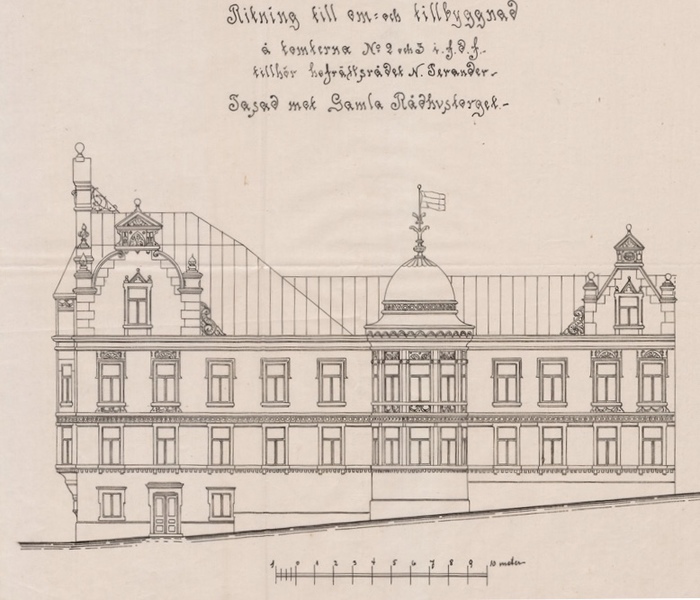 Ritning till om- och tillbyggnad
å tomterna No 2 och 3 i. f. d. f.-
tillhör hofrättsrådet N. Terander.-
Fasad mot Gamla Rådhustorget.-
1 0 1 2 3 4 5 6 7 8 9 10 meter